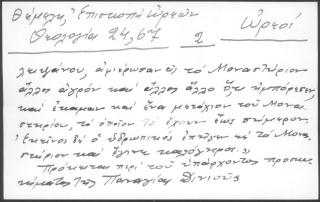 Θέμελη, Ἐπισκοπὴ Ὠρεῶν
Θεολογία 24, 67 2 Ὠρεοί
λειψάνου, ἀφιέρωσαν εἰς τὸ Μοναστήριον
ἄλλος ἀγρὸν καὶ ἄλλος ἄλλο ὅ,τι ἠμπόρεσεν,
καὶ ἔκαμαν καὶ ἕνα μετόχιον τοῦ Μονα-
στηρίου, τὸ ὁποῖον τὸ ἔχουν ἕως σήμερον.
Ἐκεῖνος δὲ ὁ ὑδρωπικὸς ἐπῆγεν εἰς τὸ Μονα-
στήριον καὶ ἔγινε καλόγηρος.»
Πρόκειται περὶ τοῦ ὑπάρχοντος προσκυ-
νήματος τῆς Παναγίας Ντινιοῦς